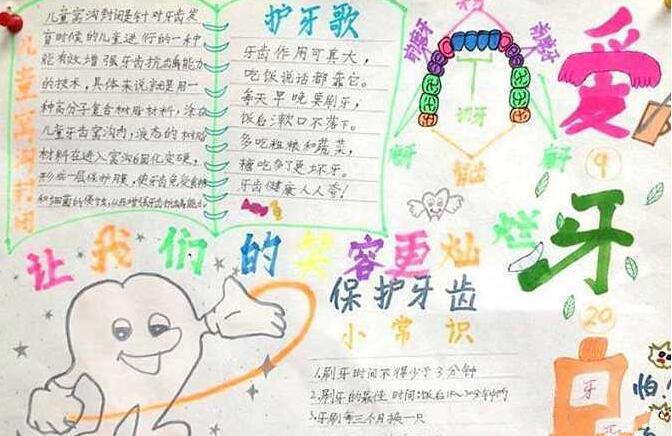 儿童窝沟封闭
儿童窝沟封闭是针对牙齿发
育时候的儿童进行的一种
能有效增强牙齿抗龋能力
的技术，具体来说就是用一
种高分子复合树脂材料，涂在
儿童牙齿窝沟内，液态的树脂
材料在进入窝沟后固化变硬，
形成一层保护膜，使牙齿免受食物
和细菌的侵蚀，从而增强牙齿抗龋能力。
护牙歌
牙齿作用可真大，
吃饭说话都靠它。
每天早晚要刷牙，
饭后漱口不落下。
多吃粗粮和蔬菜，
糖吃多了更坏牙。
牙齿健康人人夸！
切牙
智齿
爱
9
牙
20
让我们的笑容更灿烂
保护牙齿
小常识
1.刷牙时间不得少于3分钟
2.刷牙的最佳时间:饭后
3.牙刷每三个月换一只
牙
怕！